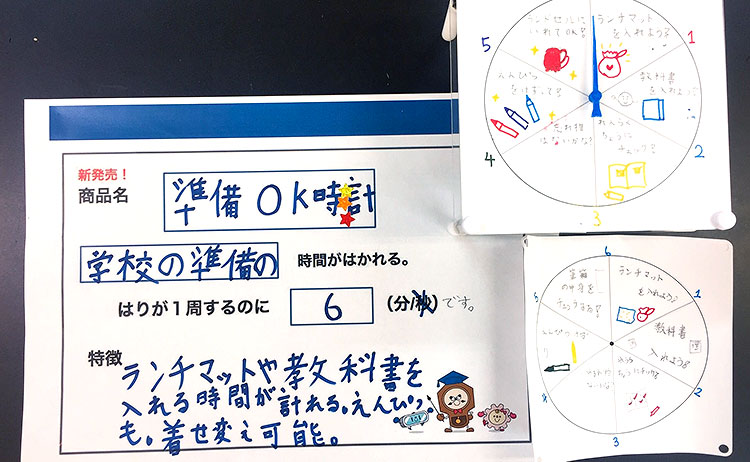 新発売!
商品名
準備OK時計
学校の準備の 時間がはかれる。
はりが1周するのに 6 (分/秒)です。
特徴
ランチマットや教科書を
入れる時間が計れる。えんぴつ
も。着せ変え可能。
ランドセルに
いれてOK?
ランチマット
を入れよう?
1
教科書
を入れよう?
2
3
忘れ物
はないかな?
4
えんぴつ
5
6
ランチマット
を入れよう?
1
教科書
入れよう?
2
3
の中身を